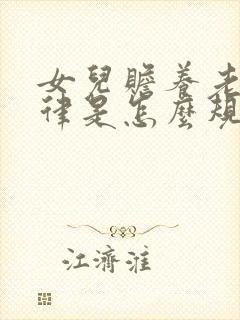 女兒贍養老
律是怎麼規
江濟淮